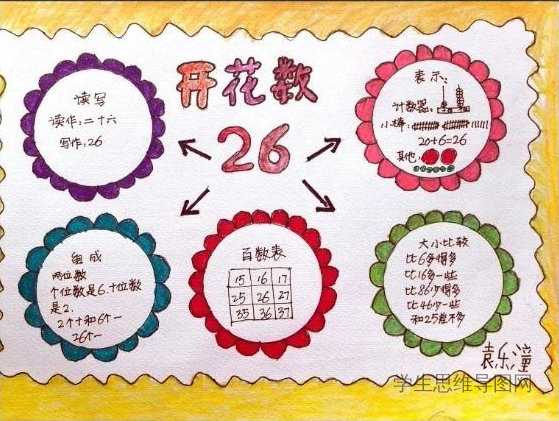 开花数
26
读写
读作：二十六
写作：26
表示：
计数器：
小棒：
20+6=26
其他：
组成
两位数
个位数是6.十位数
是2.
2个十和6个一
26个一
百数表
15 16 17
25 26 27
35 36 37
大小比较
比6多得多
比16多一些
比86少得多
比46少一些
和25差不多
袁乐潼
学生思维导图网